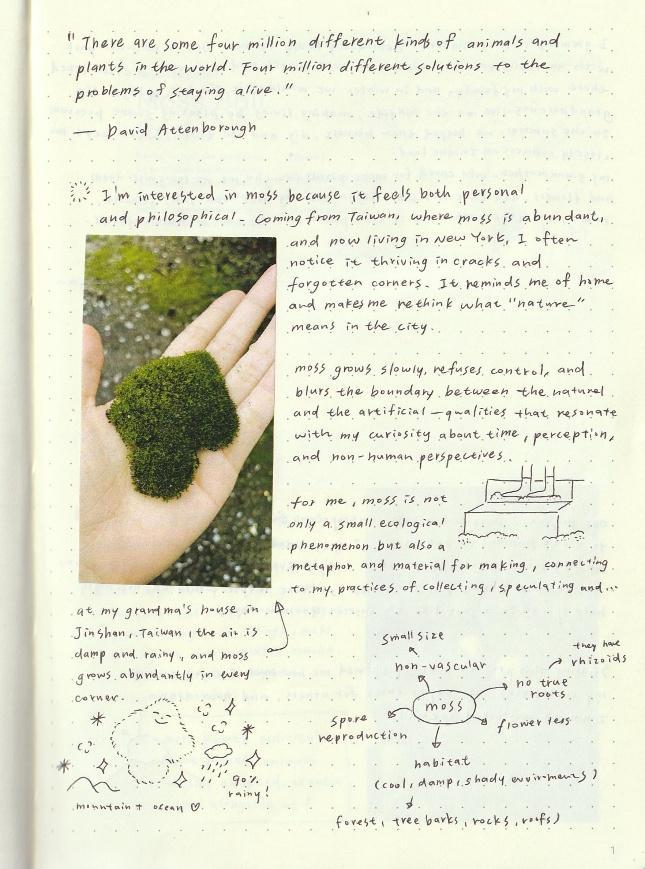 " There are some four million different kinds of animals and
plants in the world. Four million different solutions to the
problems of staying alive."
— David Attenborough
I'm interested in moss because it feels both personal
and philosophical. Coming from Taiwan, where moss is abundant,
and now living in New York, I often
notice it thriving in cracks and
forgotten corners. It reminds me of home
and makes me rethink what "nature"
means in the city.
moss grows slowly, refuses control, and
blurs the boundary between the natural
and the artificial — qualities that resonate
with my curiosity about time, perception,
and non-human perspectives.
for me, moss is not
only a small ecological
phenomenon but also a
metaphor and material for making, connecting
to my practices of collecting, speculating and...
at my grandma's house in
Jinshan, Taiwan, the air is
damp and rainy, and moss
grows abundantly in every
corner.
90%
rainy!
mountain + ocean ♡
small size
non-vascular
they have
rhizoids
no true
roots
moss
flowerless
spore
reproduction
habitat
(cool, damp, shady enviroments)
forest, tree barks, rocks, roofs)
1